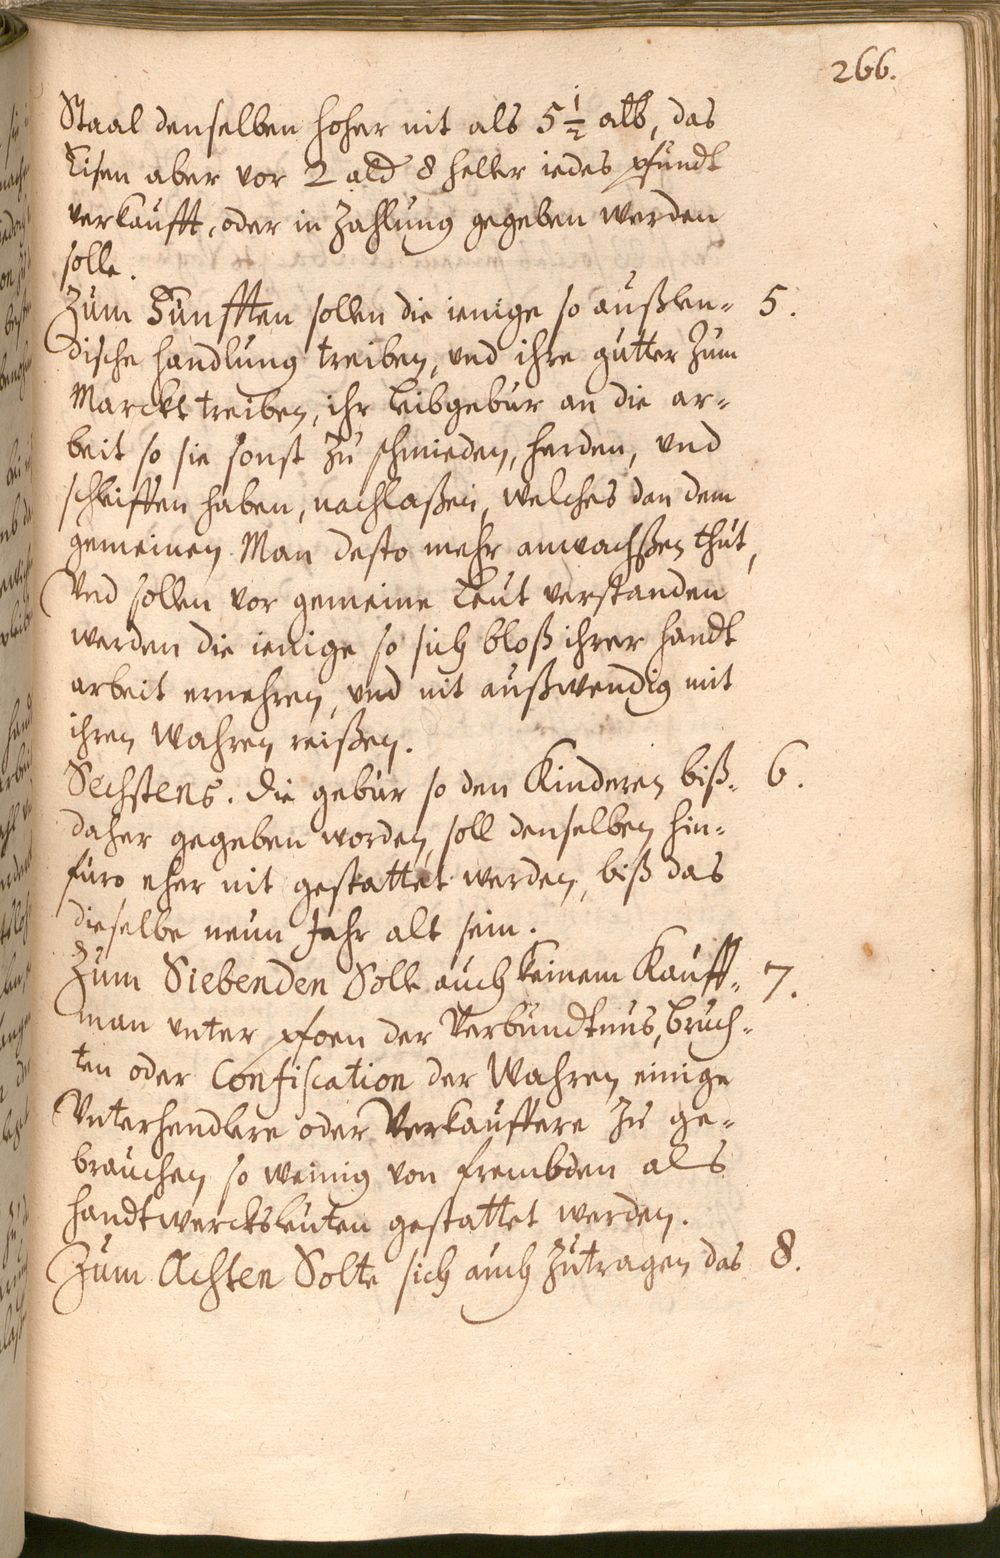 266.
Staal denselben hoher nit als 5 1/2 alb, das
Eisen aber vor 2 ald 8 heller iedes pfundt
verkaufft, oder in Zahlung gegeben werden
solle.
Zum Funfften sollen die ienige so außlen= 5.
dische handlung treiben, und ihre gutter Zum
Marckt treiben, ihr Leibgebur an die ar=
beit so sie sonst Zu schmieden, herden, und
schleiffen haben, nachlaßen, welches dan dem
gemeinen Man desto mehr anwachßen thut,
Und sollen vor gemeine Leut verstanden
werden die ienige so sich bloß ihrer handt
arbeit ernehren, und nit außwendig mit
ihren Wahren reißen.
Sechstens. Die gebur so den Kinderen biß= 6.
daher gegeben worden, soll denselben hin=
furo eher nit gestattet werden, biß das
dieselbe neun Jahr alt sein.
Zum Siebenden Solle auch keinem Kauff= 7.
man unter pfoen der Verbundtnus, bruch=
ten oder Confiscation der Wahren einige
Unterhendlere oder Verkauffere Zu ge=
brauchen so weinig von frembden als
handtwercksleuten gestattet werden.
Zum Achten Solte sich auch Zutragen das 8.